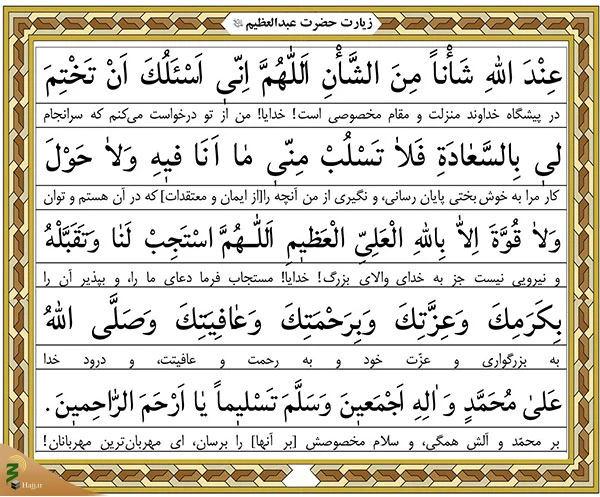 زیارت حضرت عبدالعظیم
عِنْدَ اللهِ شَأْناً مِنَ الشَّأْنِ اَللّٰهُمَّ اِنّی اَسْئَلُكَ اَنْ تَخْتِمَ
در پیشگاه خداوند منزلت و مقام مخصوصی است! خدایا! من از تو درخواست می‌کنم که سرانجام
لی بِالسَّعٰادَةِ فَلاٰ تَسْلُبْ مِنّی مٰا اَنَا فیهِ وَلاٰ حَوْلَ
کار مرا به خوش بختی پایان رسانی، و نگیری از من آنچه را[از ایمان و معتقدات] که در آن هستم و توان
وَلاٰ قُوَّةَ اِلاّٰ بِاللهِ الْعَلِیِّ الْعَظیمِ اَللّٰهُمَّ اسْتَجِبْ لَنٰا وَتَقَبَّلْهُ
و نیرویی نیست جز به خدای والای بزرگ! خدایا! مستجاب فرما دعای ما را، و بپذیر آن را
بِكَرَمِكَ وَعِزَّتِكَ وَبِرَحْمَتِكَ وَعٰافِيَتِكَ وَصَلَّی اللهُ
به بزرگواری و عزّت خود و به رحمت و عافیتت، و درود خدا
عَلیٰ مُحَمَّدٍ وَ اٰلِهِ اَجْمَعینَ وَسَلَّمَ تَسْلیماً یٰا اَرْحَمَ الرّٰاحِمینَ.
بر محمّد و آلش همگی، و سلام مخصوصش [بر آنها] را برسان، ای مهربان‌ترین مهربانان!
Hajj.ir